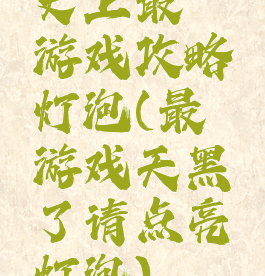 史上最
游戏攻略
灯泡(最
游戏天黑
了请点亮
灯泡)